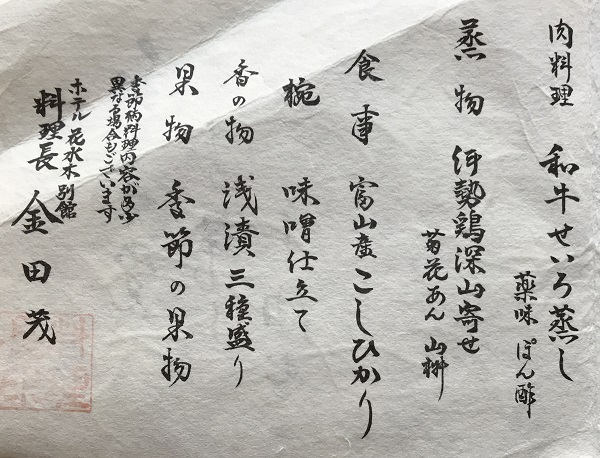 肉料理 和牛せいろ蒸し
薬味 ぽん酢
蒸物 伊勢鶏深山寄せ
菊花あん 山椒
食事 富山産こしひかり
椀 味噌仕立て
香の物 浅漬三種盛り
果物 季節の果物
季節柄料理内容が
異なる場合もございます
ホテル花水木別館
料理長 金田茂